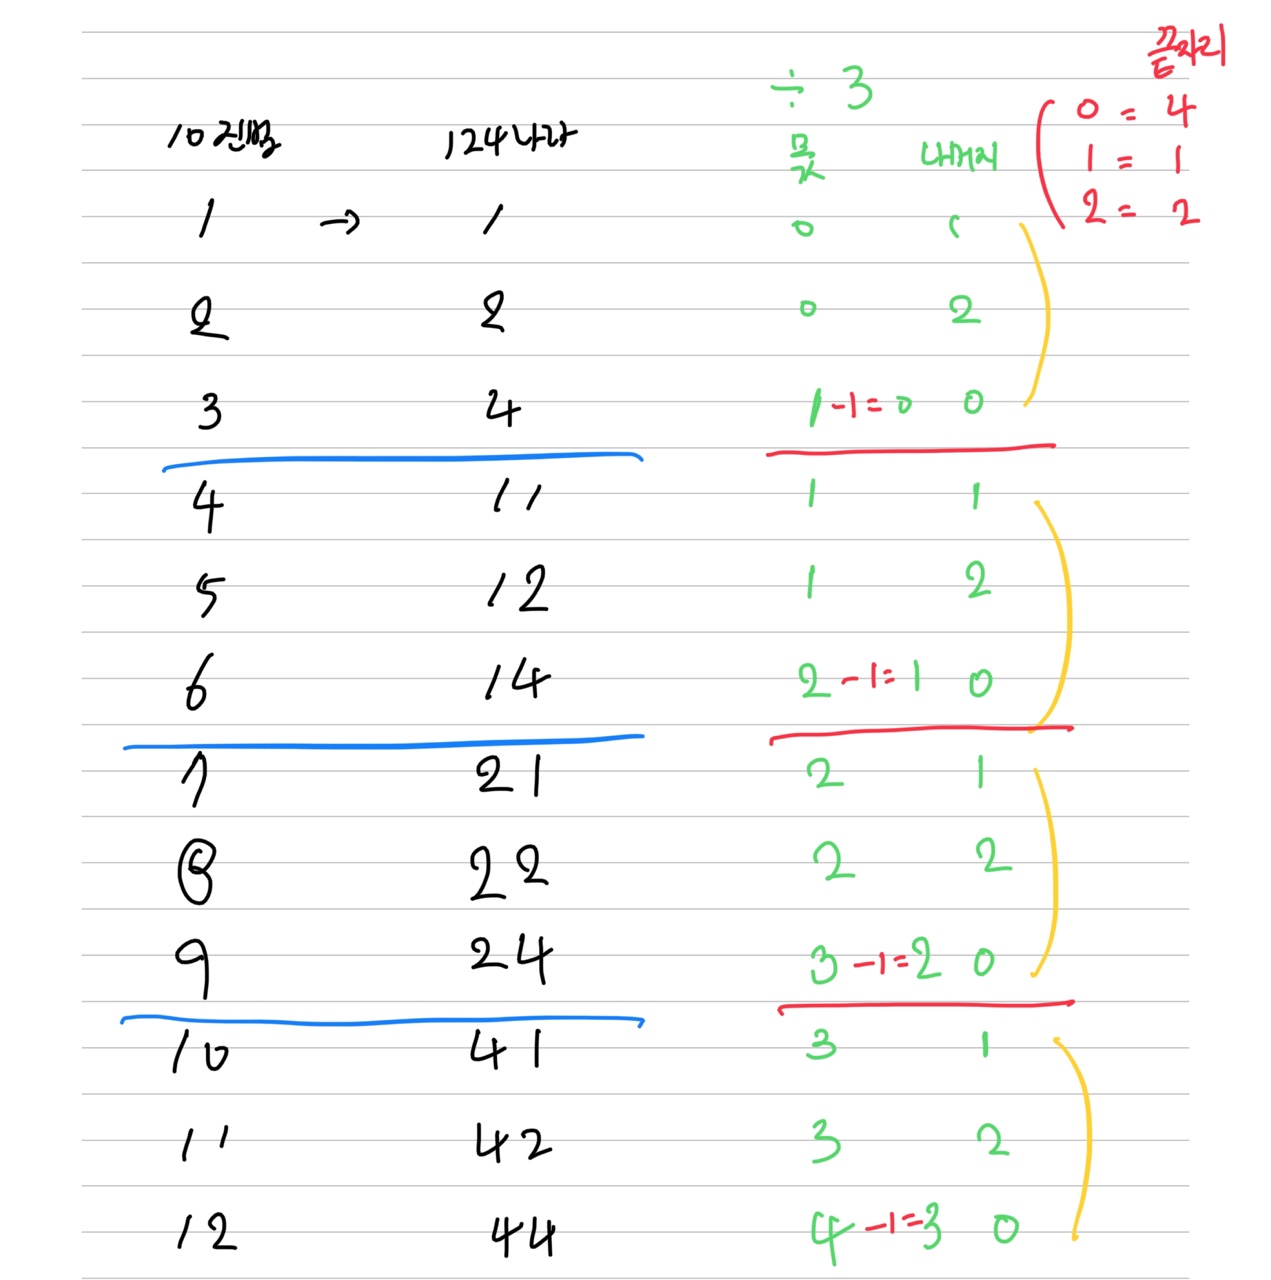 끝자리
÷ 3
0 = 4
10진법 124나라 몫 나머지
1 = 1
2 = 2
1 → 1 0 1
2 2 0 2
3 4 1 -1= 0 0
4 11 1 1
5 12 1 2
6 14 2 -1= 1 0
7 21 2 1
8 22 2 2
9 24 3 -1= 2 0
10 41 3 1
11 42 3 2
12 44 4 -1= 3 0